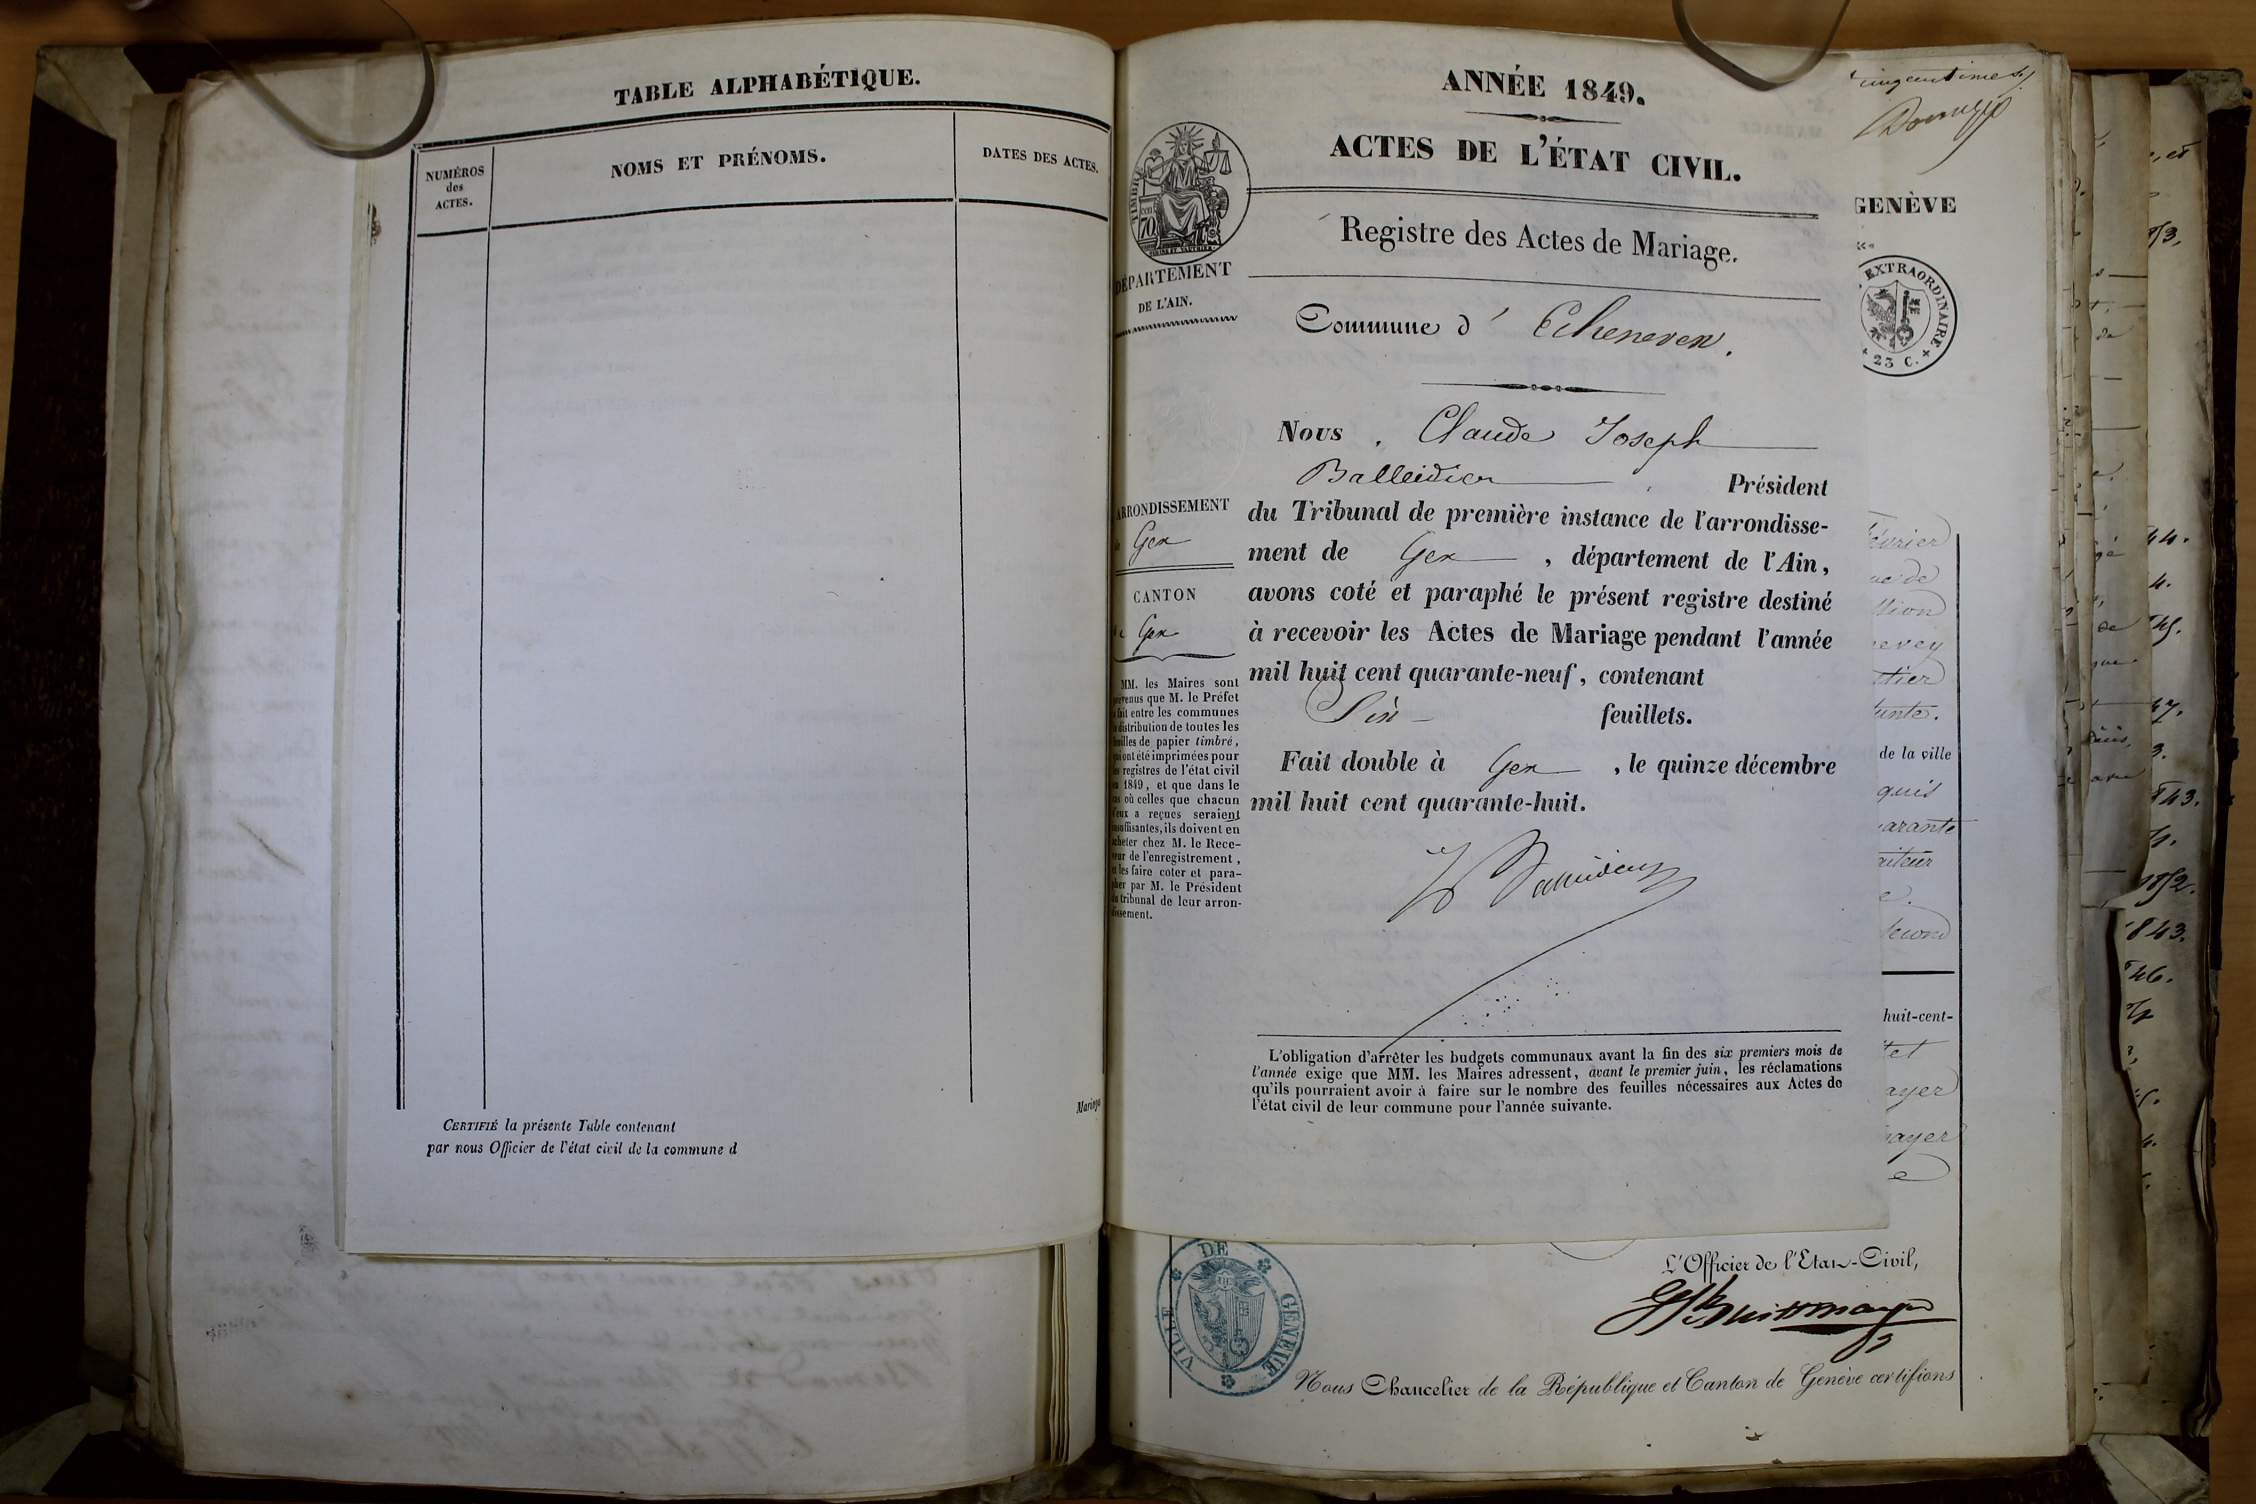 TABLE ALPHABÉTIQUE.
NUMÉROS
des
ACTES.
NOMS ET PRÉNOMS.
DATES DES ACTES.
CERTIFIÉ la présente Table contenant
par nous Officier de l'état civil de la commune d
ANNÉE 1849.
ACTES DE L'ÉTAT CIVIL.
Registre des Actes de Mariage.
TIMBRE
70
DÉPARTEMENT
DE L'AIN.
Commune d' Echenevex.
Nous, Claude Joseph
Balleidier Président
du Tribunal de première instance de l'arrondisse-
ment de Gex, département de l'Ain,
avons coté et paraphé le présent registre destiné
à recevoir les Actes de Mariage pendant l'année
mil huit cent quarante-neuf, contenant
Six feuillets.
Fait double à Gex, le quinze décembre
mil huit cent quarante-huit.
ARRONDISSEMENT
Gex
CANTON
Gex
MM. les Maires sont
prévenus que M. le Préfet
a fait entre les communes
la distribution de toutes les
feuilles de papier timbré,
qui ont été imprimées pour
les registres de l'état civil
en 1849, et que dans le
cas où celles que chacun
d'eux a reçues seraient
insuffisantes, ils doivent en
acheter chez M. le Rece-
veur de l'enregistrement,
et les faire coter et para-
pher par M. le Président
du tribunal de leur arron-
dissement.
L'obligation d'arrêter les budgets communaux avant la fin des six premiers mois de
l'année exige que MM. les Maires adressent, avant le premier juin, les réclamations
qu'ils pourraient avoir à faire sur le nombre des feuilles nécessaires aux Actes de
l'état civil de leur commune pour l'année suivante.
GENÈVE
EXTRAORDINAIRE
23 C.
de la ville
quis
arante
second
huit-cent-
VILLE DE GENEVE
L'Officier de l'Etat-Civil,
Nous Chancelier de la République et Canton de Genève certifions